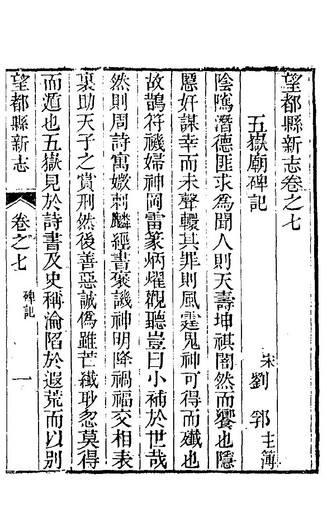 望都縣新志卷之七
五嶽廟碑記
宋 劉邠 主簿
陰隲潛德匪求爲聞人則天壽坤祺闇然而饗也隱
慝奸謀幸而未聲轘其罪則風霆鬼神可得而殲也
故鵲符禨婦神岡雷篆炳燿觀聽豈曰小補於世哉
然則周詩寓媺刺麟經書褒譏神明降禍福交相表
裏助天子之賞刑然後善惡誠僞雖芒纖眇忽莫得
而遁也五嶽見於詩書及史稱淪陷於遐荒而以別
望都縣新志
卷之七
碑記
一